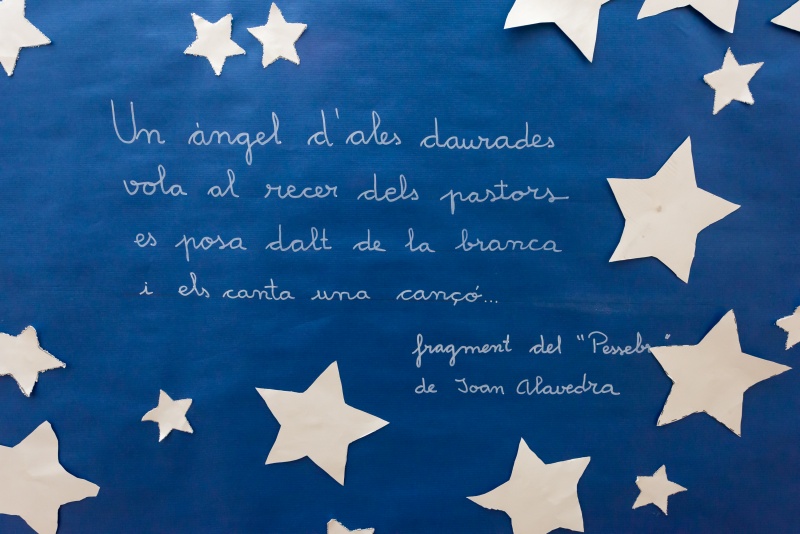 Un àngel d'ales daurades
vola al recer dels pastors
es posa dalt de la branca
i els canta una cançó...
fragment del "Pessebre"
de Joan Alavedra